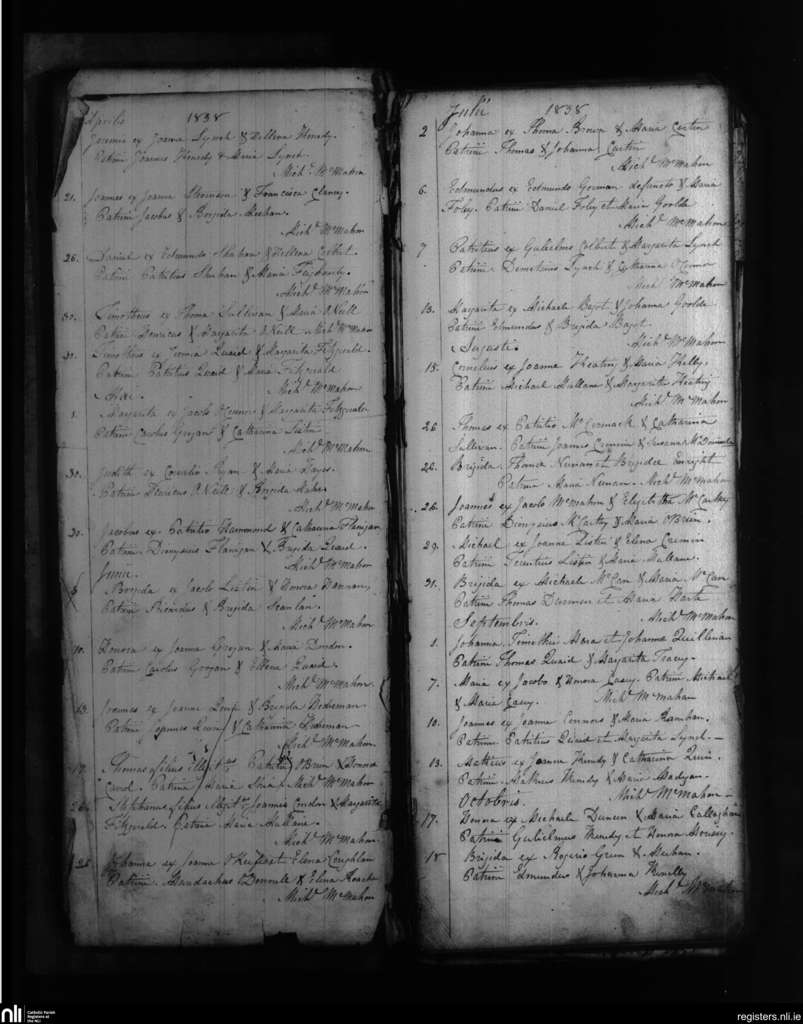 Aprilis 1838
Jeremie ex Joanna Lynch & Hellena Kenedy.
Patrini Joannes Kenedy & Maria Lynch.
Mich.d McMahon
21. Joannes ex Joanne & Francisca Clancy.
Patrini Jacobus & Brigida Meehan.
Mich.d McMahon
26. ex Edmundo Shehan & Hellena Colbert.
Patrini Patritius Shehan & Maria
Mich.d McMahon
30. Timotheus ex Thoma Sullivan & Maria O Neill
Patrini Henricus & Margarita O Neill Mich.d McMahon
31. Timotheus ex Quaid & Margarita Fitzgerald.
Patrini Patritius Quaid & Maria Fitzgerald
Mich.d McMahon
1. Margarita ex Jacob O Connor & Margarita Fitzgerald
Patrini Carolus Grogan & Catharina Listin
Mich.d McMahon
30. Judith ex Cornelio Ryan & Maria Hayes.
Patrini O Neill & Brigida Maher
Mich.d McMahon
30. Jacobus ex Patritio Hammond & Catharina Flanigan
Patrini Dionysius Flanigan & Brigida Quaid.
Junii. Mich.d McMahon
5 Brigida ex Jacob Listin & Honora Hannan,
Patrini & Brigida Scanlan.
Mich.d McMahon
10. Honora ex Joanna Grogan & Maria Condon.
Patrini Carolus Grogan & Ellena Quaid.
Mich.d McMahon.
Joannes ex Joanne & Brinda
Patrini Joannes & Catharina
Mich.d McMahon
17. Thomas filius Illegt. Patritii O'Brien & Honora
Carol. Patrini Maria Shea Mich.d McMahon
Stephanus filius Illegt. Joannis Condon & Margarita
Fitzgerald. Patrini Maria Mallane.
Mich.d McMahon
Johanna ex Joanne O Keeffe et Elena Coughlan
Patrini O Donnell & Elena Roache
Mich.d McMahon
Julii 1838
2 Johanna ex Thoma Brown & Maria Curtin
Patrini Thomas & Johanna Curtin
Mich.d McMahon
6. Edmundus ex Edmundo Gorman defuncto & Maria
Foley. Patrini Daniel Foley et Maria Goolde
Mich.d McMahon
7 Patritius ex Gulielmo Colbert & Margarita Lynch
Patrini Demetrius Lynch & Catharina O Connor
Mich.d McMahon
13. Margarita ex Michaele Bagot & Johanna Goolde
Patrini Edmundus & Brigida Bagot
Augusti. Mich.d McMahon
15. Cornelius ex Joanne Heating & Maria Kelly.
Patrini Michael Mallane & Margarita Heating
Mich.d McMahon
26 Thomas ex Patritio McCormack & Catharina
Sullivan. Patrini Joannes Cremin & Susanna
26. Brigida Thomae Neenan et Brigidae Enright
Patrini Maria Neenan. Mich.d McMahon
26. Joannes ex Jacobo McMahon & Elizabetha McCarthy
Patrini Dionysius McCarthy & Maria O'Brien.
29. Michael ex Joanne Listin & Elena Cremin
Patrini Terentius Listin & Maria Mallane.
31. Brigida ex Michaele McCan & Maria McCan
Patrini Thomas et Maria Harte
Septembris. Mich.d McMahon
1. Johanna Timothii Mara et Johannae Quillenan
Patrini Thomas Quaid & Margarita Tracey.
7. Maria ex Jacobo & Honora Casey. Patrini Michael
& Maria Casey. Mich.d McMahon
10. Joannes ex Joanne Connors & Maria Hanihan.
Patrini Patritius Quaid et Margarita Lynch.
13. Matheus ex Joanne Kenedy & Catharina Quin.
Patrini Matheus Kenedy & Maria Madigan.
Octobris. Mich.d McMahon
17. Honora ex Michaele Duneen & Maria Callaghan
Patrini Gulielmus Kenedy et Honora
18 Brigida ex Rogerio Green & Meehan.
Patrini Edmundus & Johanna Kinelly
Mich.d McMahon
nli Catholic Parish
Registers at
the NLI
registers.nli.ie